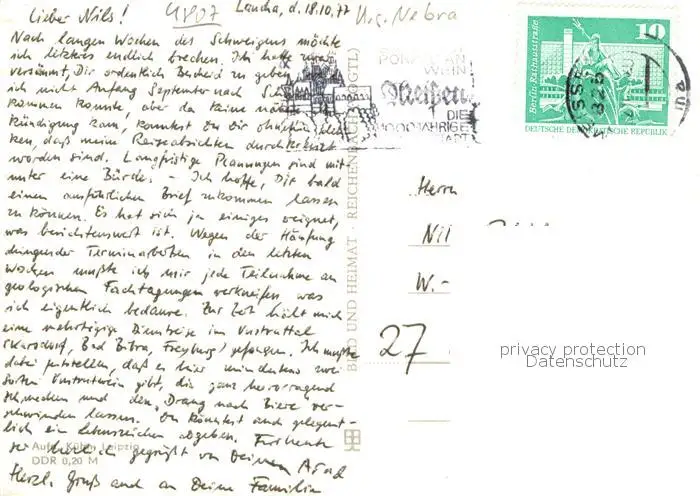 Laucha, d. 18.10.77
4807
U.g. Nebra
Lieber Nils!
Nach langen Wochen des Schweigens möchte
ich letzteres endlich brechen. Ich hatte zwar
versäumt, Dir ordentlich Bescheid zu geben,
ich nicht Anfang September nach
kommen konnte, aber da keine
kündigung kam, konntest Du Dir ohnehin
ken, daß meine Reiseabsichten durchkreuzt
worden sind. Langfristige Planungen sind mit-
unter eine Bürde. - Ich hoffe, Dir bald
einen ausführlichen Brief zukommen lassen
zu können. Es hat sich ja einiges ereignet,
was berichtenswert ist. Wegen der Häufung
dringender Terminarbeiten in den letzten
Wochen mußte ich mir jede Teilnahme an
geologischen Fachtagungen verkneifen, was
ich eigentlich bedaure. Zur Zeit hält mich
eine mehrtägige Dienstreise im Unstruttal
(Karsdorf, Bad Bibra, Freyburg) gefangen. Ich mußte
dabei feststellen, daß es hier mindestens zwei
Sorten Unstrutwein gibt, die ganz hervorragend
schmecken und den Drang nach Biere ver-
schwinden lassen. Du könntest auch gelegent-
lich ein Lebenszeichen abgeben. Für heute
sei herzlich gegrüßt von Deinem
Herzl. Gruß auch an Deine Familie
Aufn. Kühn, Leipzig
DDR 0,20 M
BILD UND HEIMAT · REICHENBACH (VOGTL)
PORZELLAN
WEIN
Meißen
DIE
1000JÄHRIGE
STADT
Berlin-Rathausstraße
10
DEUTSCHE DEMOKRATISCHE REPUBLIK
Herrn
Nil
W.-
27
privacy protection
Datenschutz